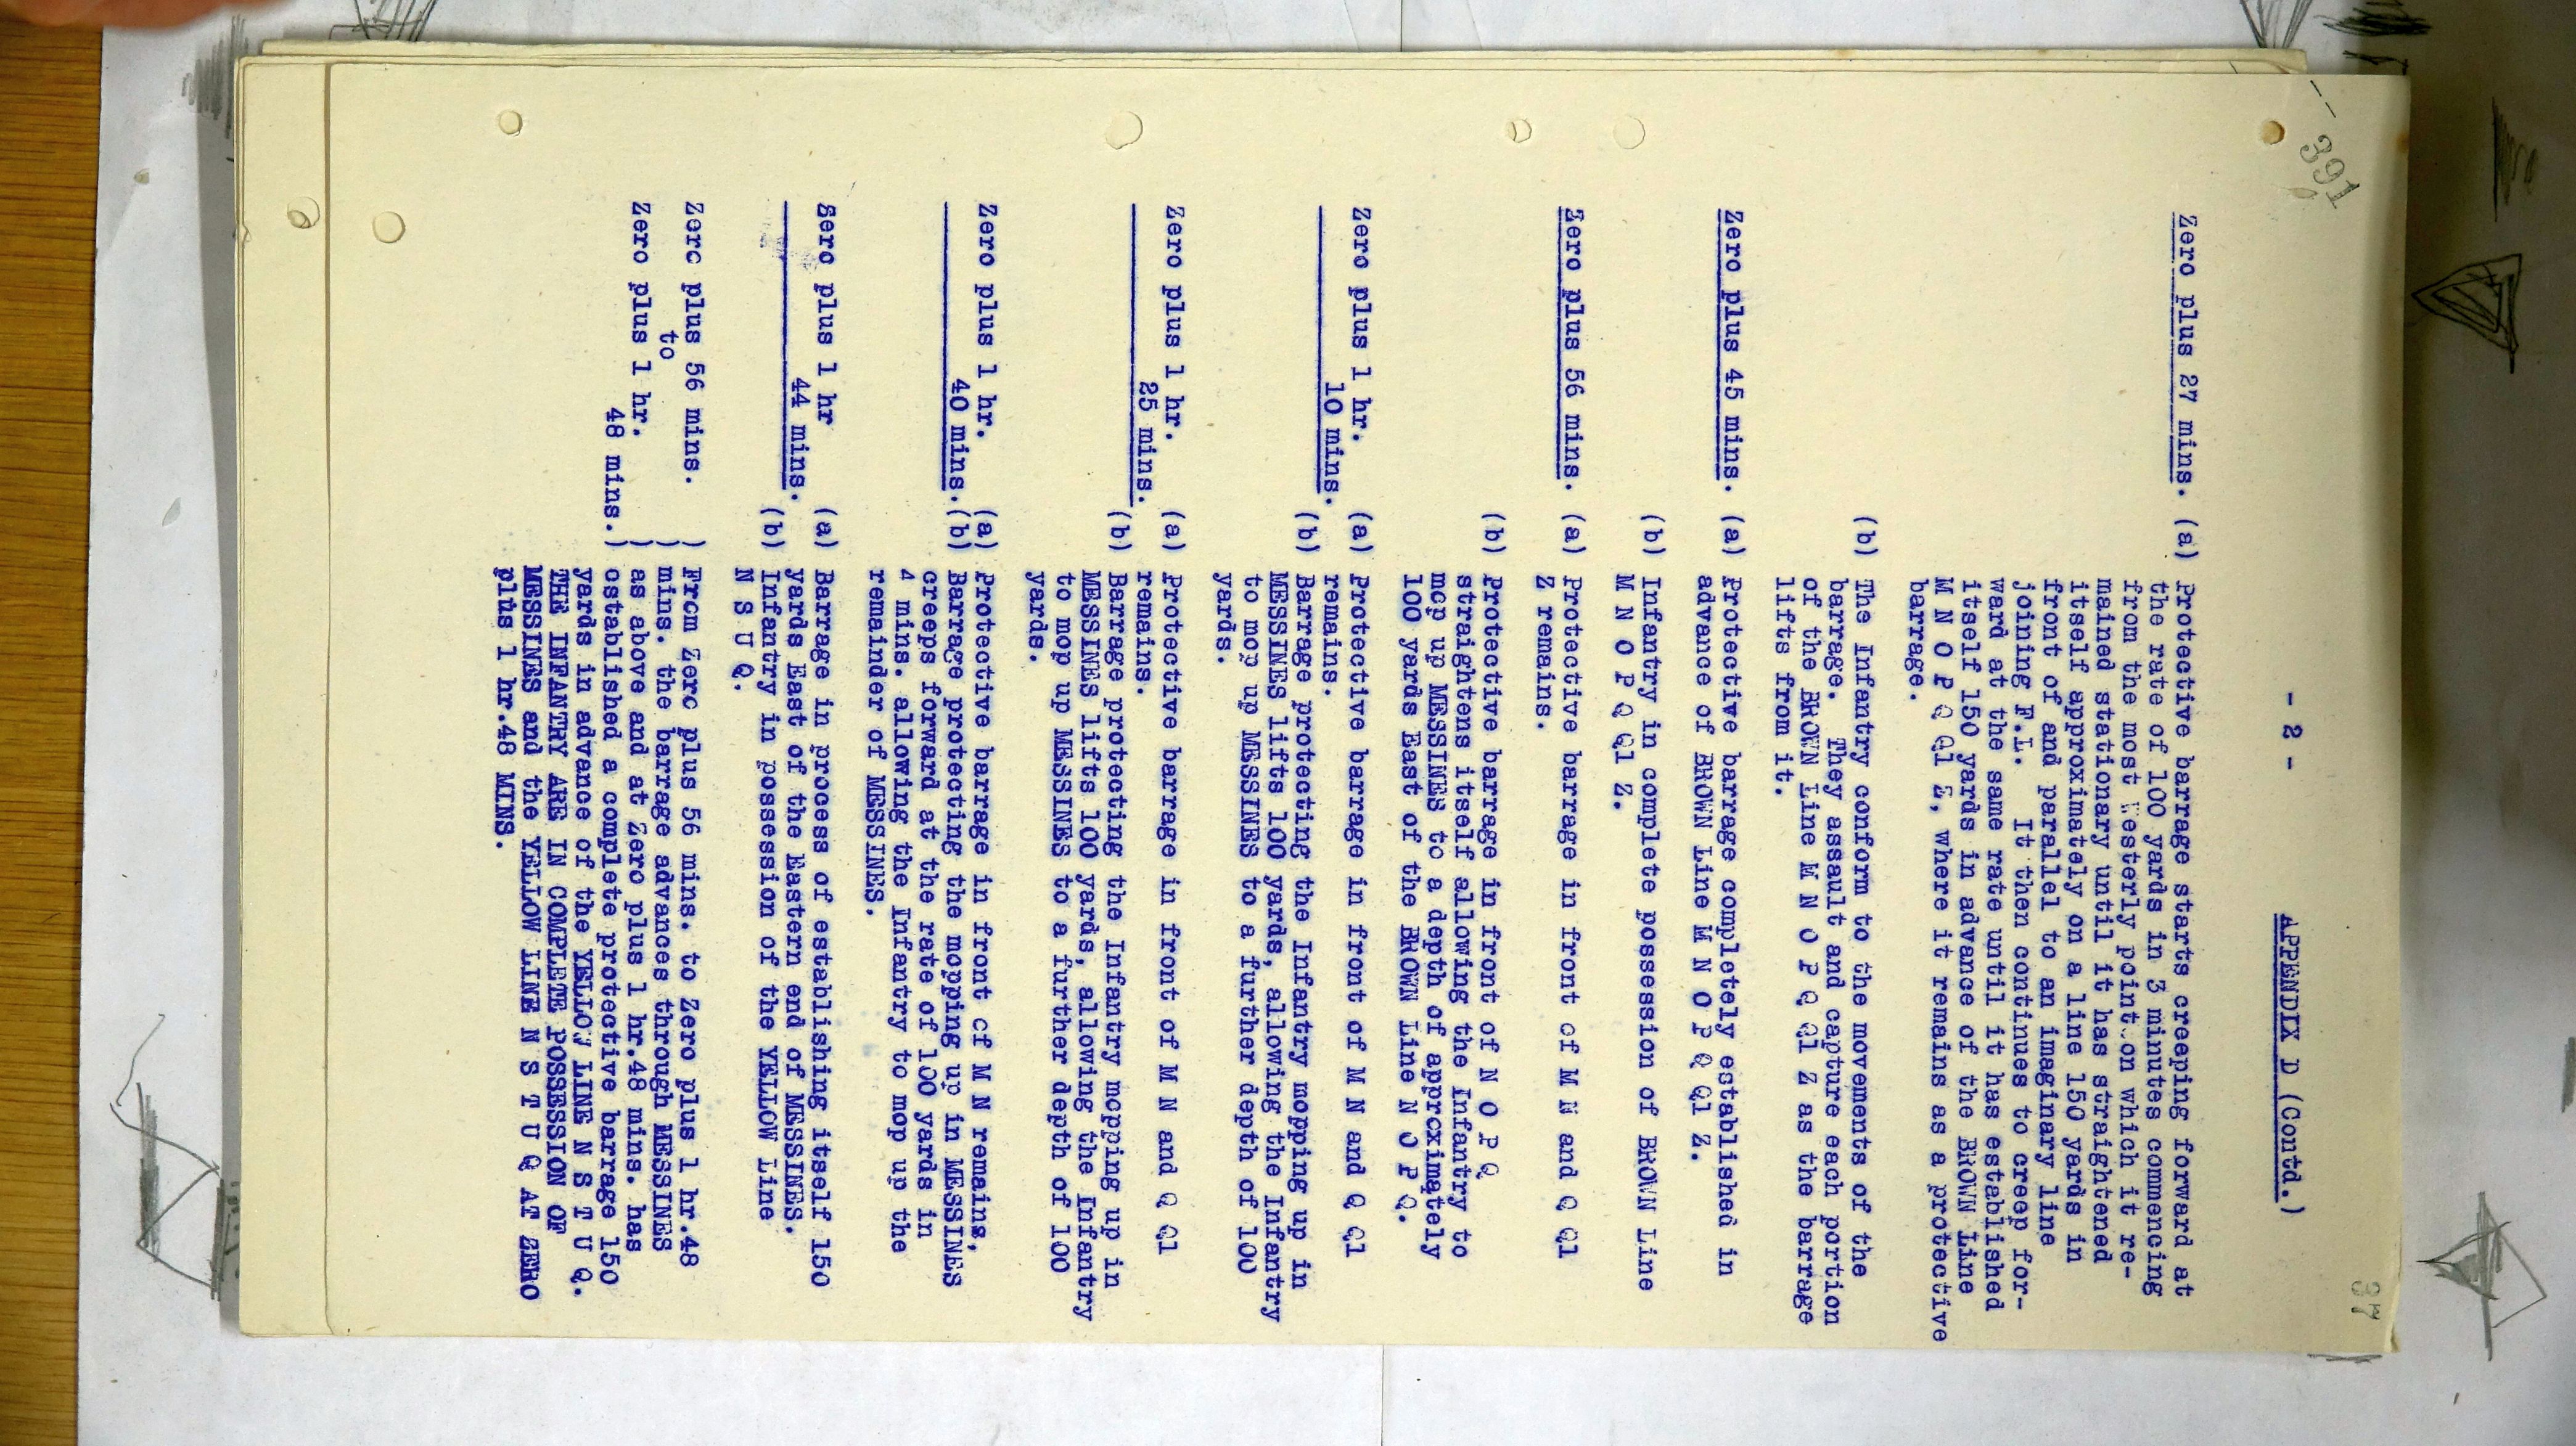 391
37
- 2 -
APPENDIX D (Contd.)
Zero plus 27 mins. (a) Protective barrage starts creeping forward at
the rate of 100 yards in 3 minutes commencing
from the most Westerly point on which it re-
mained stationary until it has straightened
itself approximately on a line 150 yards in
front of and parallel to an imaginary line
joining F.L. It then continues to creep for-
ward at the same rate until it has established
itself 150 yards in advance of the BROWN Line
M N O P Q Q1 Z, where it remains as a protective
barrage.
(b) The Infantry conform to the movements of the
barrage. They assault and capture each portion
of the BROWN Line M N O P Q Q1 Z as the barrage
lifts from it.
Zero plus 45 mins. (a) Protective barrage completely established in
advance of BROWN Line M N O P Q Q1 Z.
(b) Infantry in complete possession of BROWN Line
M N O P Q Q1 Z.
Zero plus 56 mins. (a) Protective barrage in front of M N and Q Q1
Z remains.
(b) Protective barrage in front of N O P Q
straightens itself allowing the Infantry to
mop up MESSINES to a depth of approximately
100 yards East of the BROWN Line N O P Q.
Zero plus 1 hr. (a) Protective barrage in front of M N and Q Q1
10 mins. remains.
(b) Barrage protecting the Infantry mopping up in
MESSINES lifts 100 yards, allowing the Infantry
to mop up MESSINES to a further depth of 100
yards.
Zero plus 1 hr. (a) Protective barrage in front of M N and Q Q1
25 mins. remains.
(b) Barrage protecting the Infantry mopping up in
MESSINES lifts 100 yards, allowing the Infantry
to mop up MESSINES to a further depth of 100
yards.
Zero plus 1 hr. (a) Protective barrage in front of M N remains,
40 mins. (b) Barrage protecting the mopping up in MESSINES
creeps forward at the rate of 100 yards in
4 mins. allowing the Infantry to mop up the
remainder of MESSINES.
Zero plus 1 hr (a) Barrage in process of establishing itself 150
44 mins. yards East of the Eastern end of MESSINES.
(b) Infantry in possession of the YELLOW Line
N S U Q.
Zero plus 56 mins. ) From Zero plus 56 mins. to Zero plus 1 hr.48
to ) mins. the barrage advances through MESSINES
Zero plus 1 hr. ) as above and at Zero plus 1 hr.48 mins. has
48 mins.) established a complete protective barrage 150
yards in advance of the YELLOW LINE N S T U Q.
THE INFANTRY ARE IN COMPLETE POSSESSION OF
MESSINES and the YELLOW LINE N S T U Q AT ZERO
plus 1 hr.48 MINS.